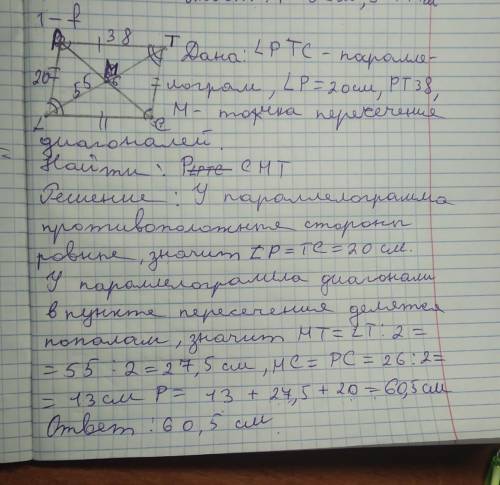 1 - f
P 38 T Дана: LPTC - паралле-
20 55 M 26 лограм, LP=20см, PT38,
L C M - точка пересечения
диагоналей.
Найти: P CMT
Решение: У параллелограмма
противоположные стороны
ровные, значит LP=TC=20 см.
У параллелограмма диагонали
в пункте пересечения делятся
пополам, значит MT=LT:2=
=55:2=27,5 см, MC=PC=26:2=
=13см P= 13+27,5+20=60,5см
Ответ: 60,5 см.